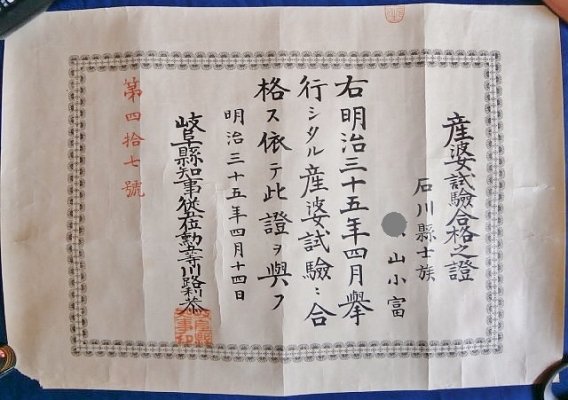 産婆試験合格之證
石川縣士族
山小富
右明治三十五年四月挙
行シタル産婆試験ニ合
格ス依テ此證ヲ與フ
明治三十五年四月十四日
岐阜縣知事從五位勲五等川路利恭
第四拾七號